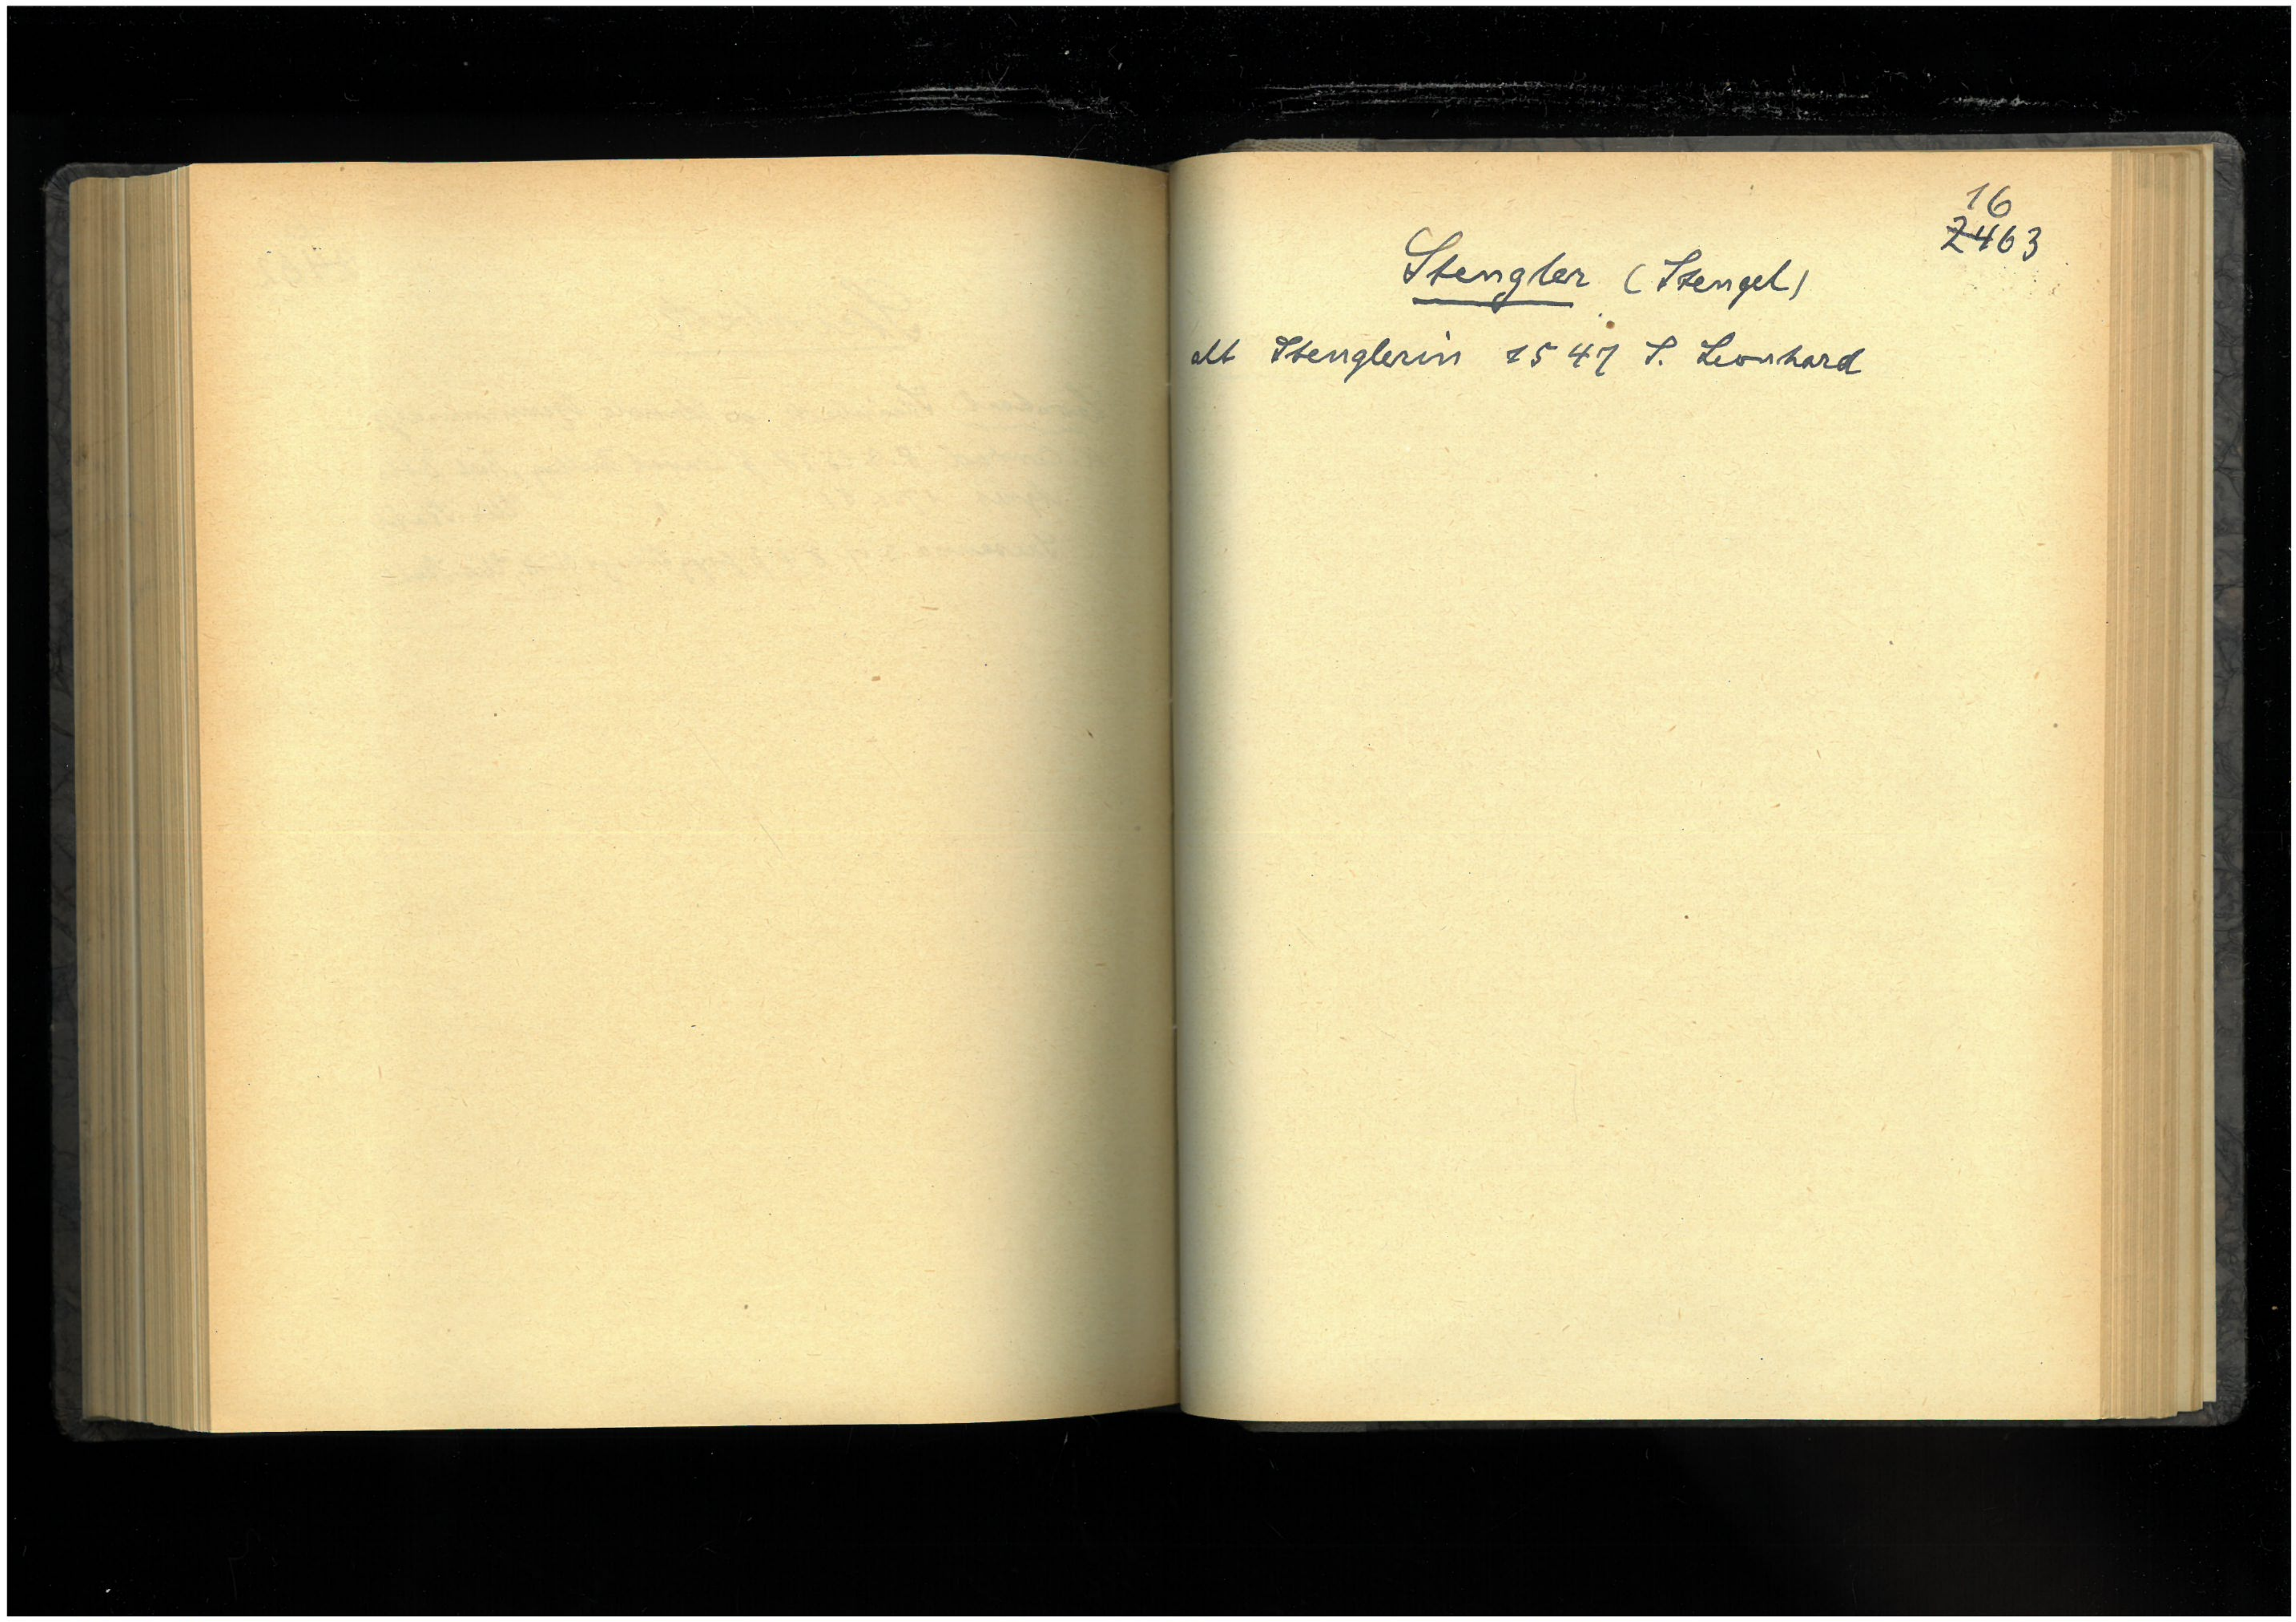 16
2463
Stengler (Stengel)
alt Stenglerin 1547 S. Leonhard